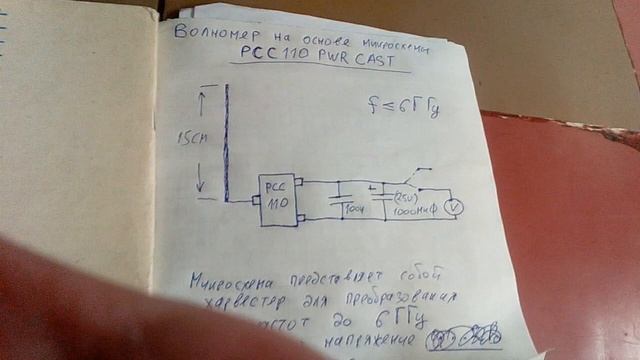 Волномер на основе микросхемы
PCC 110 PWR CAST
f ≤ 6 ГГц
15см
PCC
110
100н
+
(25V)
1000мкФ
V
Микросхема представляет собой
харвестер для преобразования
частот до 6 ГГц
напряжение